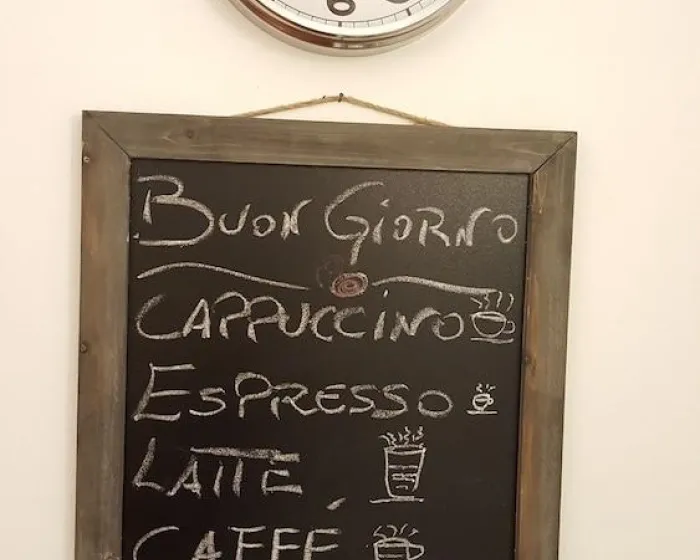 6
BUON GIORNO
CAPPUCCINO
ESPRESSO
LATTE
CAFFÉ